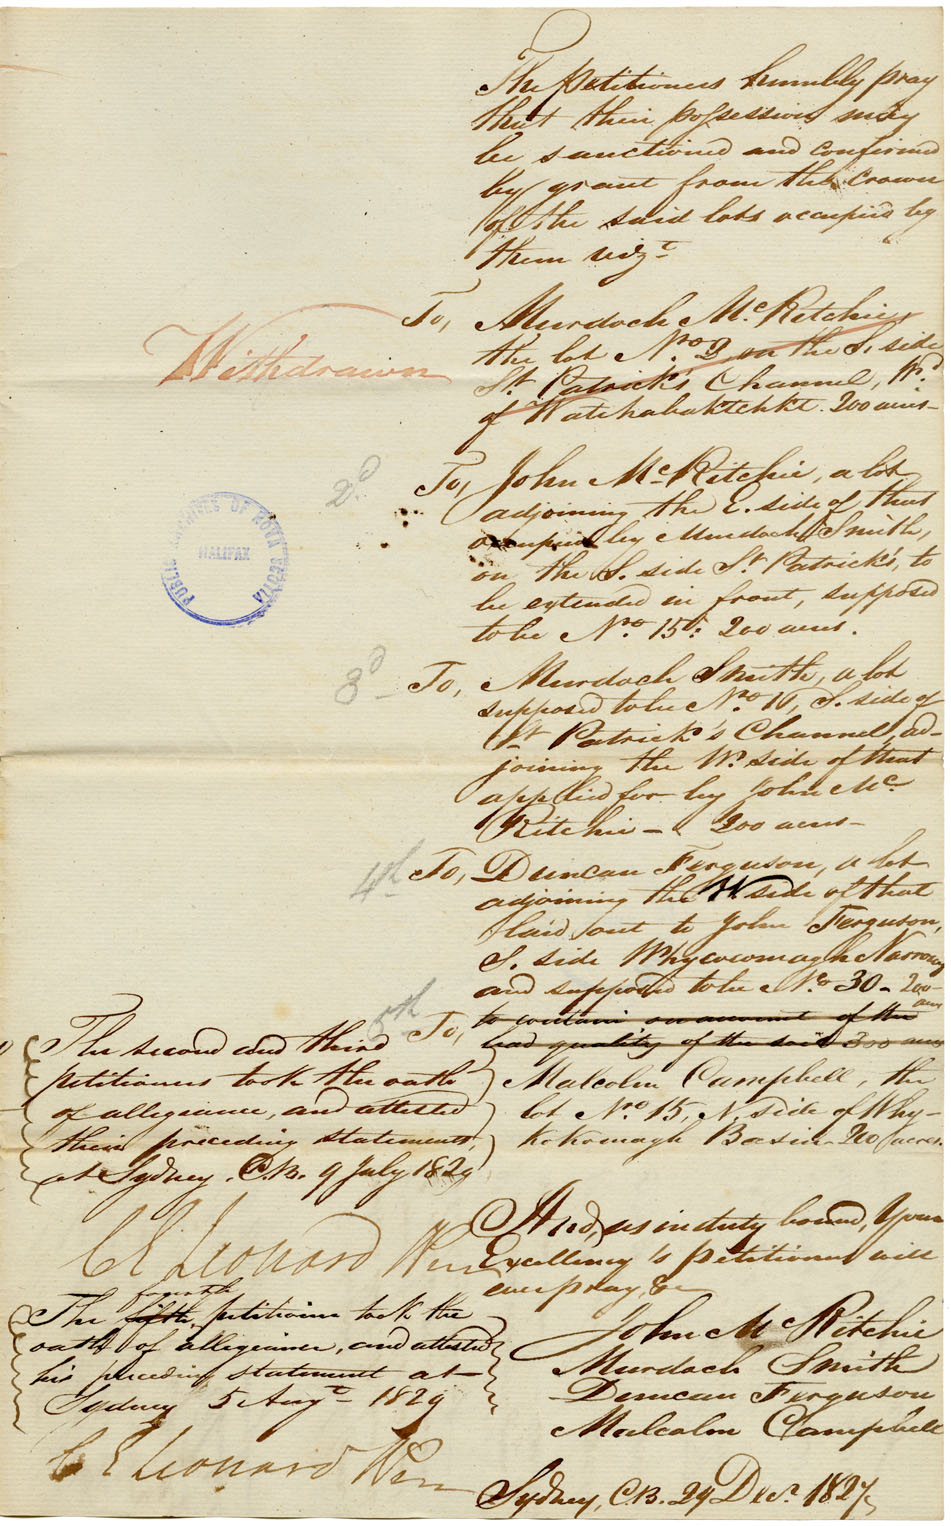 The petitioners humbly pray
that their possession may
be sanctioned and confirmed
by grant from the Crown
of the said lots occupied by
them vizt
Withdrawn
To, Murdoch McRitchie,
the lot Nro. 3 on the S. side
St. Patrick's Channel, Wd.
of Watchabaktchkt. 200 acres-
2d
To, John McRitchie, a lot
adjoining the E. side of that
occupied by Murdoch Smith,
on the S. side St Patrick's, to
be extended in front, supposed
to be Nro. 15: 200 acres.
PUBLIC ARCHIVES OF NOVA SCOTIA
HALIFAX
3d
To, Murdoch Smith, a lot
supposed to be Nro 16, S. side of
St Patrick's Channel, ad-
joining the W. side of that
applied for by John Mc
Ritchie - 200 acres-
4th
To, Duncan Ferguson, a lot
adjoining the W side of that
laid out to John Ferguson,
S. side Whycocomagh Narrows
and supposed to be No. 30 - 200
acres
5th
To, to contain on account of the
bad quality of the soil 300 acres
Malcolm Campbell, the
lot Nro 15, N. side of Why-
kokomagh Basin - 200 acres.
The second and third
petitioners took the oath
of allegiance, and attested
their preceding statements,
at Sydney. C.B. 9 July 1829
C E Leonard
And, as in duty bound, Your
Excellency's petitioners will
ever pray, &c
The fifth fourth petitioner took the
oath of allegiance, and attested
his preceding statement at
Sydney 5 Augt 1829
C E Leonard
John McRitchie
Murdoch Smith
Duncan Ferguson
Malcolm Campbell
Sydney, C.B. 29 Decr. 1827